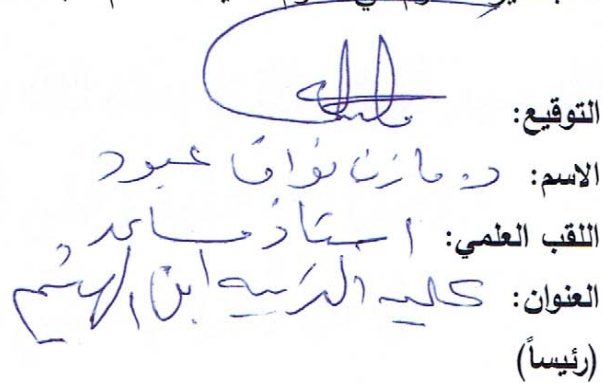 التوقيع:
الاسم: د. مازن نواف عبود
اللقب العلمي: استاذ مساعد
العنوان: كلية التربية ابن الهيثم
(رئيساً)